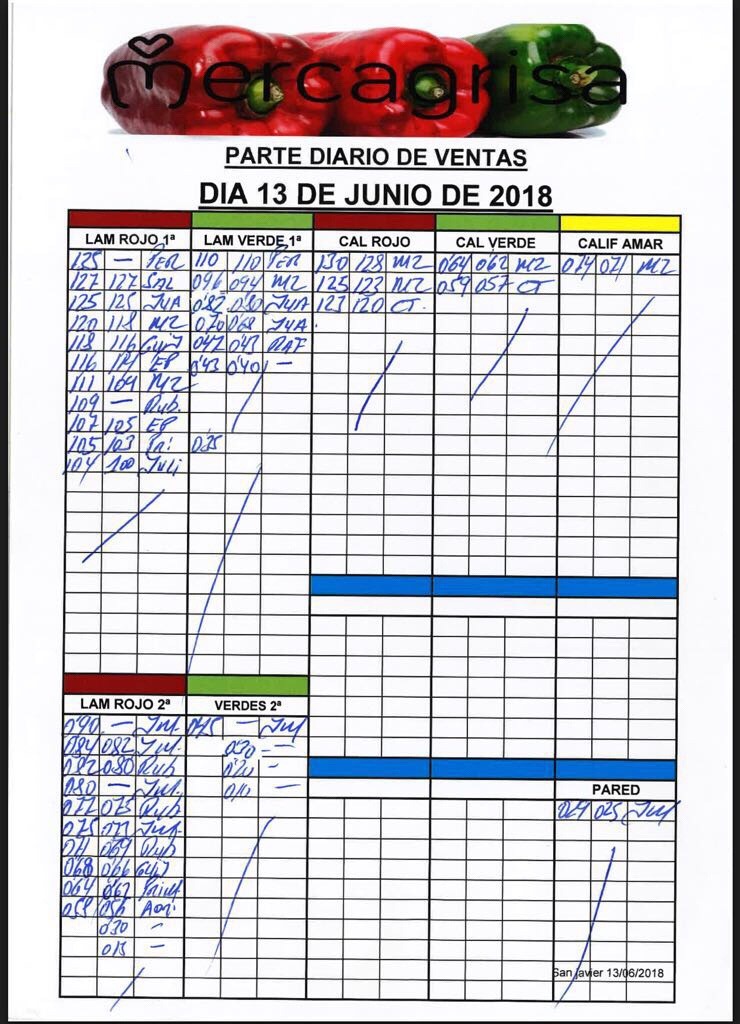 mercagrisa
PARTE DIARIO DE VENTAS
DIA 13 DE JUNIO DE 2018
LAM ROJO 1ª
125 — FER
127 127 SAL
125 125 JUA
120 118 MZ
118 116
116 114 EP
111 109 MZ
109 — Rub.
107 105 EP
105 103
104 100 Juli
LAM VERDE 1ª
110 110 FER
096 094 MZ
082 080 JUA
070 068 JUA.
047 043 RAF
043 040 —
035
CAL ROJO
130 128 MZ
125 123 MZ
123 120 CT.
CAL VERDE
064 062 MZ
059 057 CT
CALIF AMAR
074 071 MZ
LAM ROJO 2ª
090 —
084 082
082 080 Rub
080 —
077 075 Rub
075 071
071 069 Rub
068 066
064 062
058 056
030 —
015 —
VERDES 2ª
045 —
030 —
020 —
010 —
PARED
025
San javier 13/06/2018